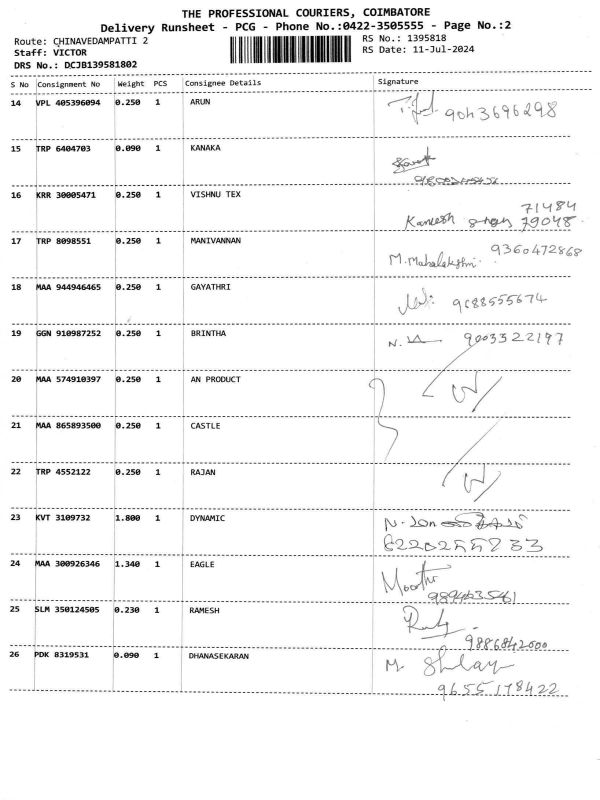 THE PROFESSIONAL COURIERS, COIMBATORE
Delivery Runsheet - PCG - Phone No.:0422-3505555 - Page No.:2
Route: CHINAVEDAMPATTI 2
RS No.: 1395818
Staff: VICTOR
RS Date: 11-Jul-2024
DRS No.: DCJB139581802
S No Consignment No Weight PCS Consignee Details Signature
14 VPL 405396094 0.250 1 ARUN
9043696298
15 TRP 6404703 0.090 1 KANAKA
16 KRR 30005471 0.250 1 VISHNU TEX
71484
79048
17 TRP 8098551 0.250 1 MANIVANNAN
9360472868
M. Mahalakshmi
18 MAA 944946465 0.250 1 GAYATHRI
9688555674
19 GGN 910987252 0.250 1 BRINTHA
N. 9003322197
20 MAA 574910397 0.250 1 AN PRODUCT
21 MAA 865893500 0.250 1 CASTLE
22 TRP 4552122 0.250 1 RAJAN
23 KVT 3109732 1.800 1 DYNAMIC
24 MAA 300926346 1.340 1 EAGLE
Moorthi
25 SLM 350124505 0.230 1 RAMESH
9886842000
26 PDK 8319531 0.090 1 DHANASEKARAN
M.
9655178422